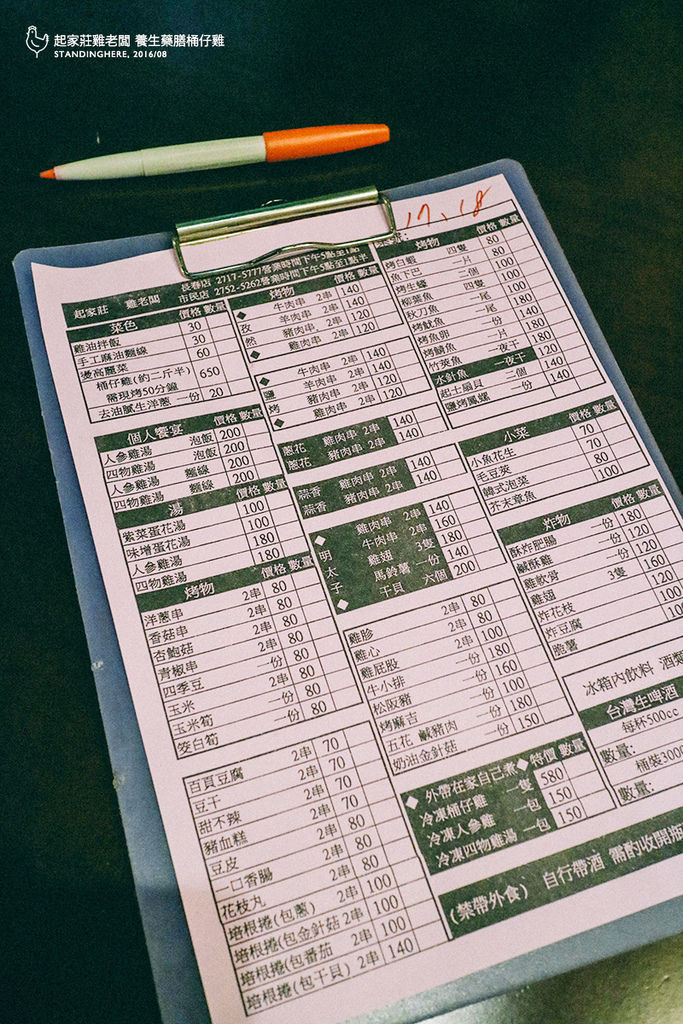 起家莊雞老闆 養生藥膳桶仔雞
STANDINGHERE, 2016/08
17、18
起家莊 雞老闆
長春店 2717-5777營業時間下午5點至1點
市民店 2752-5262營業時間下午5點至1點半
菜色 價格 數量
雞油拌飯 30
手工麻油麵線 30
燙高麗菜 60
桶仔雞(約二斤半)
需現烤50分鐘 650
去油膩生洋蔥 一份 20
個人饗宴 價格 數量
人參雞湯 泡飯 200
四物雞湯 泡飯 200
人參雞湯 麵線 200
四物雞湯 麵線 200
湯 價格 數量
紫菜蛋花湯 100
味增蛋花湯 100
人參雞湯 180
四物雞湯 180
烤物 價格 數量
洋蔥串 2串 80
香菇串 2串 80
杏鮑菇 2串 80
青椒串 2串 80
四季豆 一份 80
玉米 一份 80
玉米筍 一份 80
筊白筍 一份 80
百頁豆腐 2串 70
豆干 2串 70
甜不辣 2串 70
豬血糕 2串 70
豆皮 2串 80
一口香腸 2串 80
花枝丸 2串 80
培根捲(包蔥) 2串 100
培根捲(包金針菇 2串 100
培根捲(包番茄 2串 100
培根捲(包干貝) 2串 140
烤物 價格 數量
◆孜然◆
牛肉串 2串 140
羊肉串 2串 140
豬肉串 2串 120
雞肉串 2串 120
◆鹽烤◆
牛肉串 2串 140
羊肉串 2串 140
豬肉串 2串 120
雞肉串 2串 120
蔥花 雞肉串 2串 140
蔥花 豬肉串 2串 140
蒜香 雞肉串 2串 140
蒜香 豬肉串 2串 140
◆明太子◆
雞肉串 2串 140
牛肉串 2串 160
雞翅 3隻 180
馬鈴薯 一份 140
干貝 六個 200
雞胗 2串 80
雞心 2串 80
雞屁股 2串 100
牛小排 一份 180
松阪豬 一份 160
烤麻吉 一份 100
五花 鹹豬肉 一份 180
奶油金針菇 一份 150
◆外帶在家自己煮◆ 特價 數量
冷凍桶仔雞 一隻 580
冷凍人參雞 一包 150
冷凍四物雞湯 一包 150
(禁帶外食) 自行帶酒 需酌收開瓶
烤物 價格 數量
烤白蝦 四隻 80
魚下巴 一片 80
烤生蠔 二個 100
柳葉魚 四隻 100
秋刀魚 一尾 100
烤魷魚 一尾 180
烤魚卵 一份 100
烤鱈魚 一片 180
竹莢魚 一夜干 180
水針魚 一夜干 120
起士扇貝 二個 140
鹽烤鳳螺 一份 140
小菜 價格 數量
小魚花生 70
毛豆莢 70
韓式泡菜 80
芥末章魚 100
炸物 價格 數量
酥炸肥腸 一份 180
鹹酥雞 一份 120
雞軟骨 一份 120
雞翅 3隻 160
炸花枝 120
炸豆腐
脆薯 100
冰箱內飲料 酒類
台灣生啤酒
每杯500cc
數量:
桶裝3000
數量: